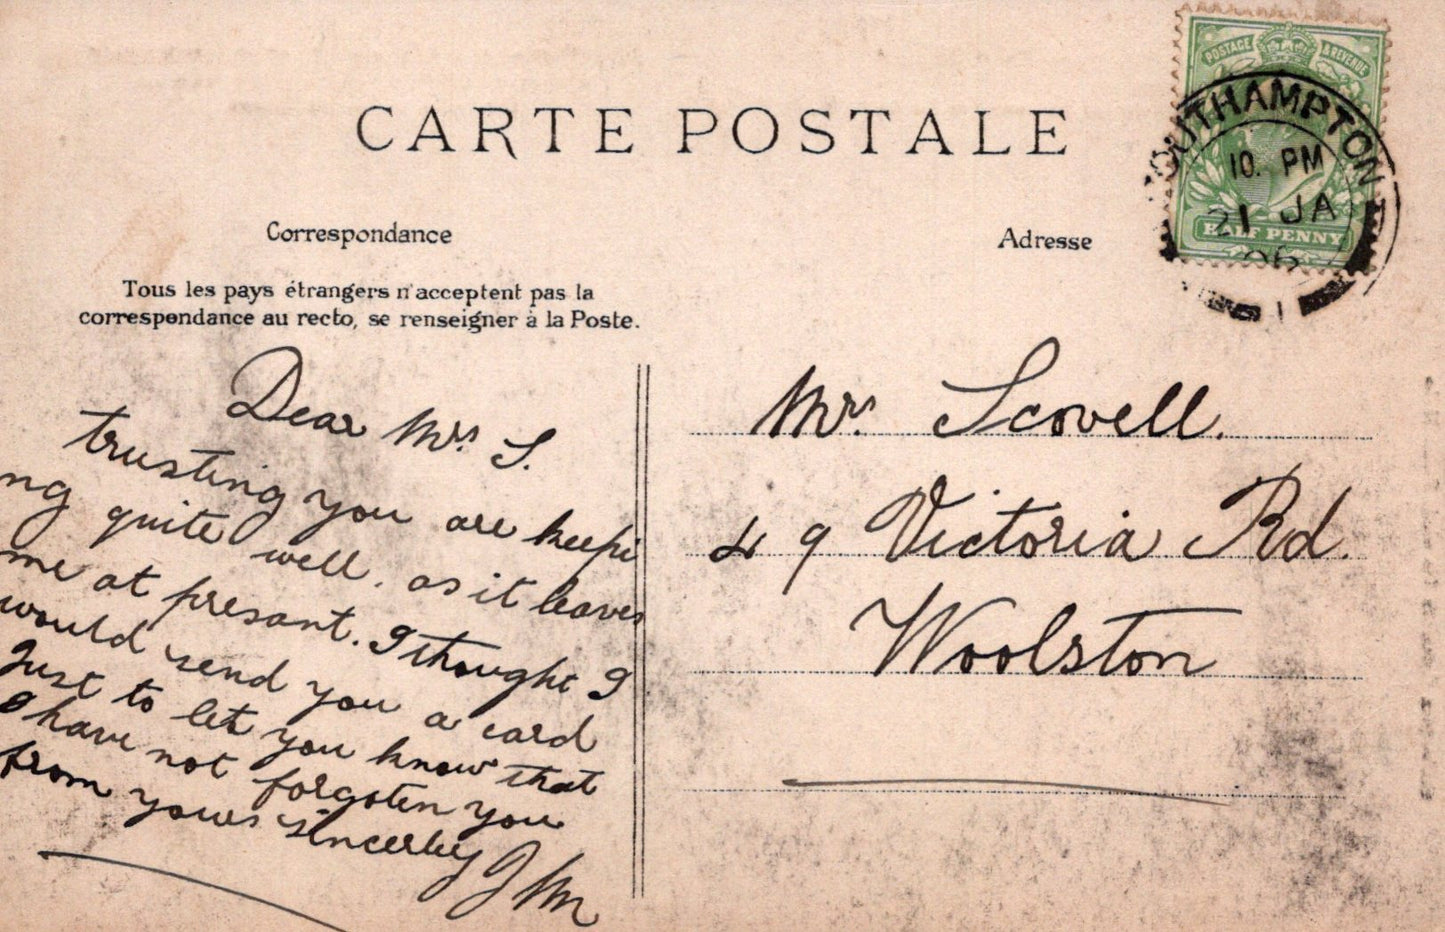 CARTE POSTALE
POSTAGE & REVENUE
SOUTHAMPTON
10. PM
21 JA
06
HALF PENNY
1
Correspondance
Adresse
Tous les pays étrangers n'acceptent pas la
correspondance au recto, se renseigner à la Poste.
Dear Mrs S.
trusting you are keepi
ng quite well. as it leaves
me at presant. I thought I
would send you a card
Just to let you know that
I have not forgoten you
from yours sincerley
Mrs. Scovell.
49 Victoria Rd.
Woolston